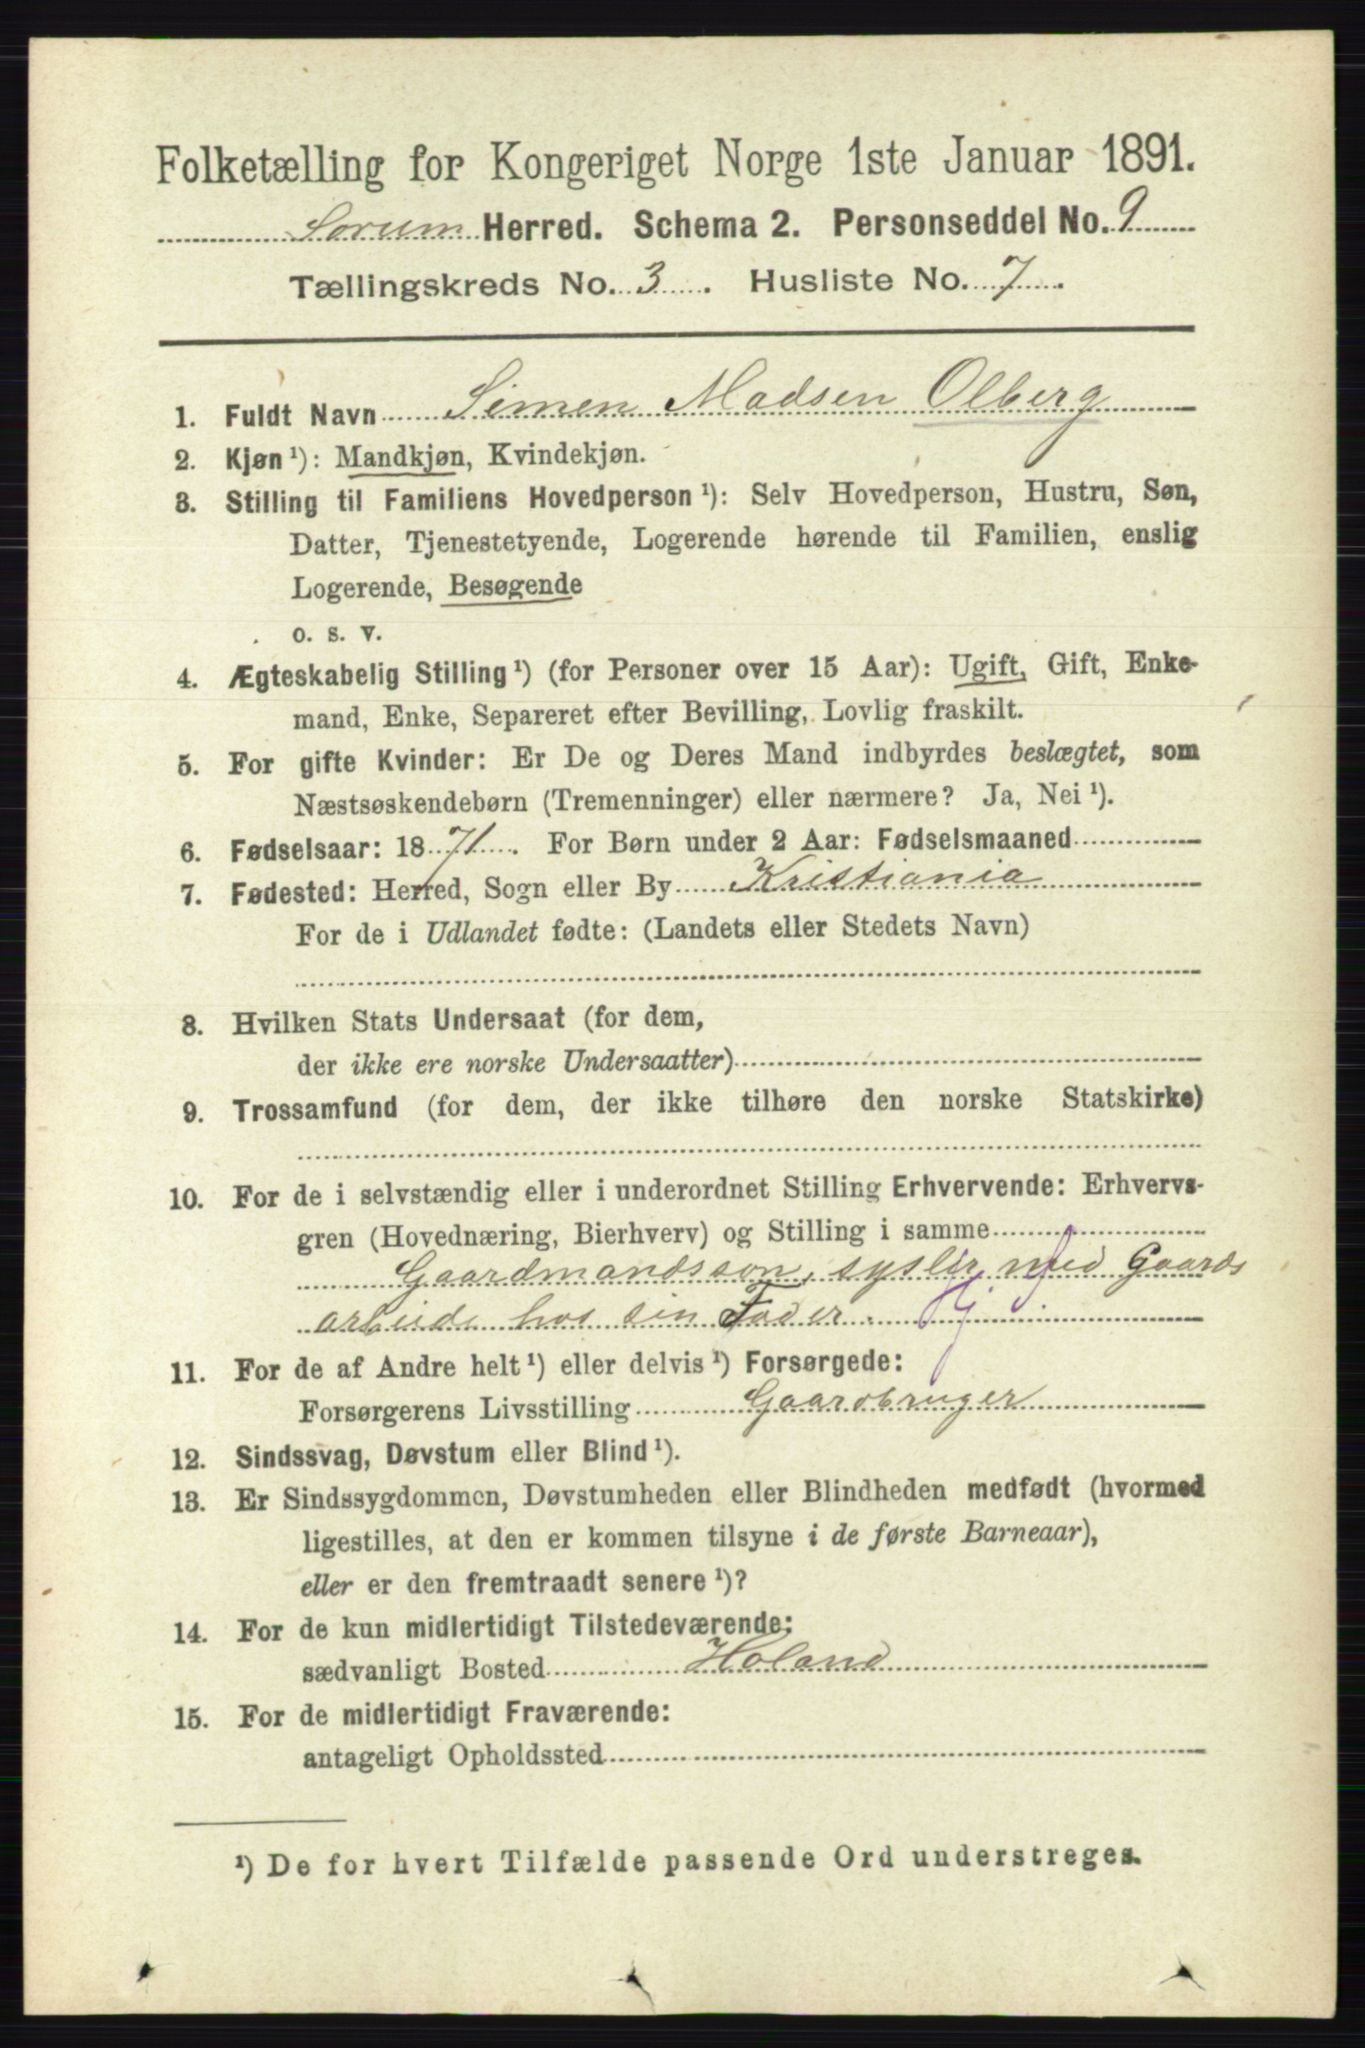 Folketælling for Kongeriget Norge 1ste Januar 1891.
Sorum Herred. Schema 2. Personseddel No. 9
Tællingskreds No. 3. Husliste No. 7.
1. Fuldt Navn Simen Madsen Olberg
2. Kjøn ¹): Mandkjøn, Kvindekjøn.
3. Stilling til Familiens Hovedperson ¹): Selv Hovedperson, Hustru, Søn,
Datter, Tjenestetyende, Logerende hørende til Familien, enslig
Logerende, Besøgende
o. s. v.
4. Ægteskabelig Stilling ¹) (for Personer over 15 Aar): Ugift, Gift, Enke-
mand, Enke, Separeret efter Bevilling, Lovlig fraskilt.
5. For gifte Kvinder: Er De og Deres Mand indbyrdes beslægtet, som
Næstsøskendebørn (Tremenninger) eller nærmere? Ja, Nei ¹).
6. Fødselsaar: 1871. For Børn under 2 Aar: Fødselsmaaned
7. Fødested: Herred, Sogn eller By Kristiania
For de i Udlandet fødte: (Landets eller Stedets Navn)
8. Hvilken Stats Undersaat (for dem,
der ikke ere norske Undersaatter)
9. Trossamfund (for dem, der ikke tilhøre den norske Statskirke)
10. For de i selvstændig eller i underordnet Stilling Erhvervende: Erhvervs-
gren (Hovednæring, Bierhverv) og Stilling i samme
Gaardmandssøn, sysler med Gaards
arbeide hos sin Fader. Hj
11. For de af Andre helt ¹) eller delvis ¹) Forsørgede:
Forsørgerens Livsstilling Gaardbruger
12. Sindssvag, Døvstum eller Blind ¹).
13. Er Sindssygdommen, Døvstumheden eller Blindheden medfødt (hvormed
ligestilles, at den er kommen tilsyne i de første Barneaar),
eller er den fremtraadt senere ¹)?
14. For de kun midlertidigt Tilstedeværende:
sædvanligt Bosted Høland
15. For de midlertidigt Fraværende:
antageligt Opholdssted
¹) De for hvert Tilfælde passende Ord understreges.